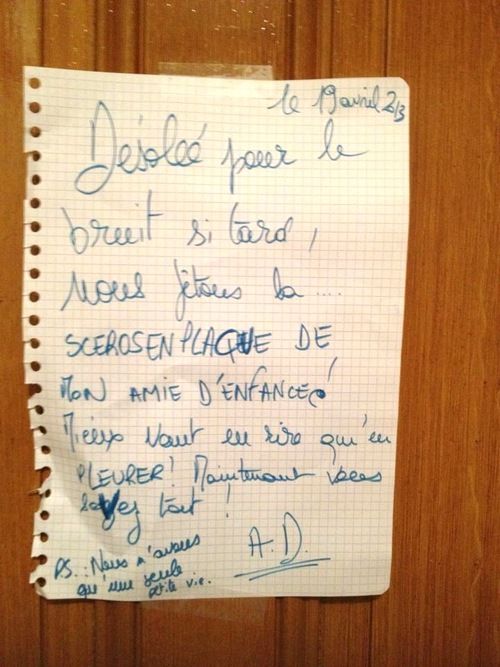 le 19 avril 2/3
Désolée pour le
bruit si tard,
Nous fêtons la ....
SCEROSENPLAQUE DE
MON AMIE D'ENFANCE!
Mieux Vaut en rire qu'en
PLEURER! Maintenant vous
savez tout !
A.D.
PS.. Nous n'avons
qu'une seule
petite vie.